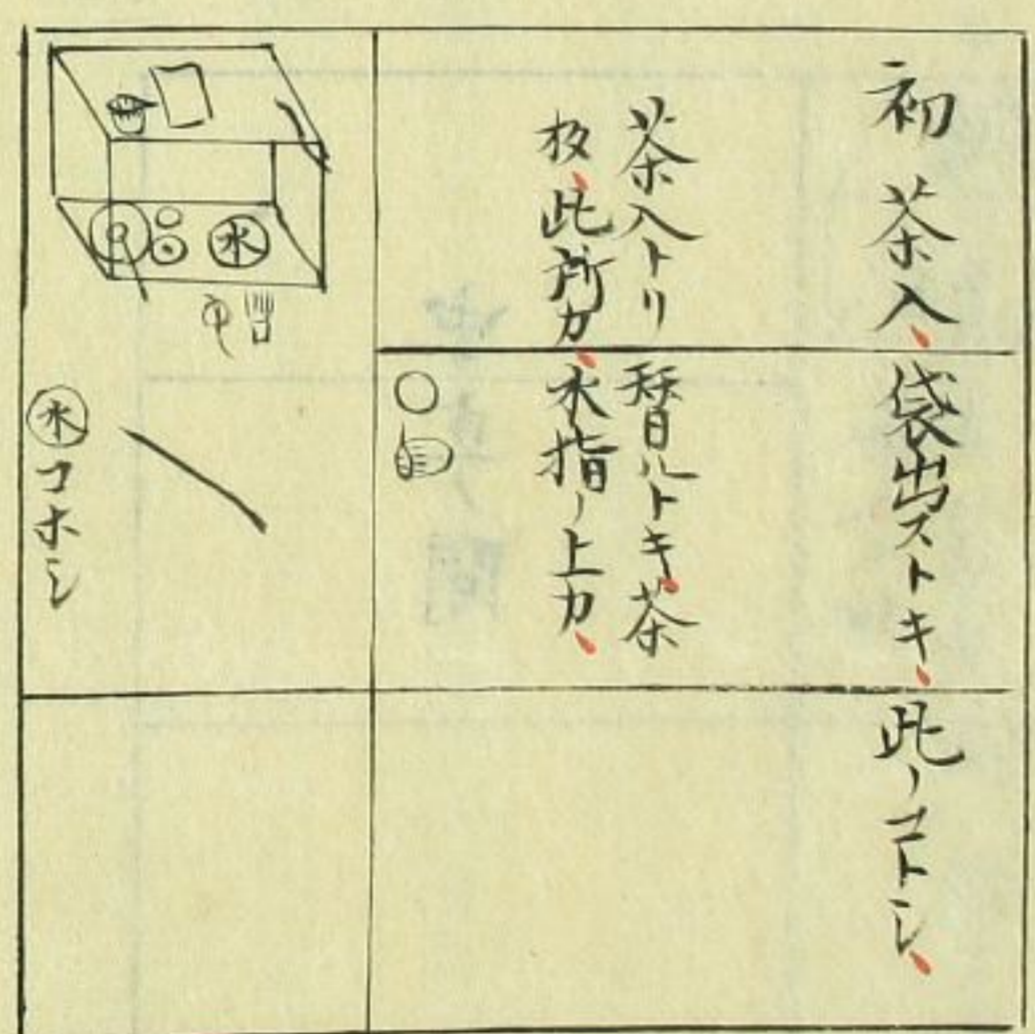 初茶入、袋出ストキ、此ノコトシ、
茶入トリ替ルトキ、茶
扱、此所カ、水指ノ上カ、
水
水コホシ